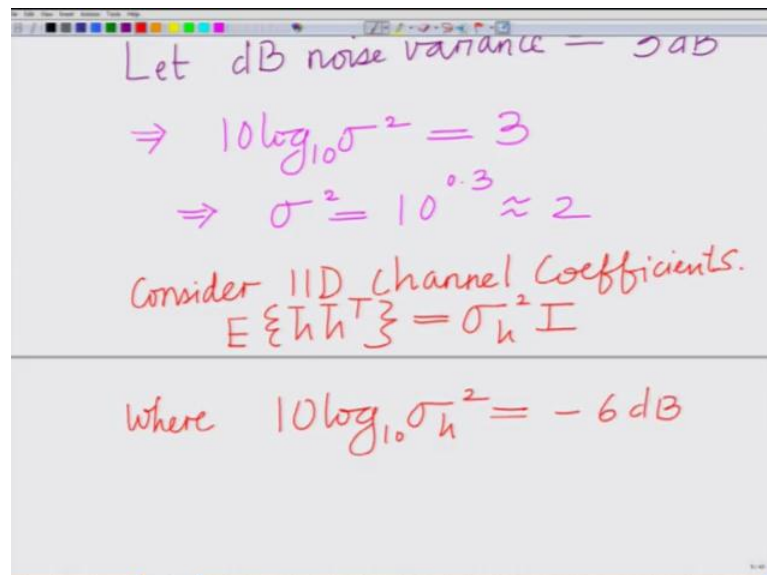 Let dB noise variance = 3dB
⇒ 10log₁₀σ² = 3
⇒ σ² = 10^0.3 ≈ 2
Consider IID Channel Coefficients.
E{h̄h̄ᵀ} = σₕ²I
Where 10log₁₀σₕ² = -6dB